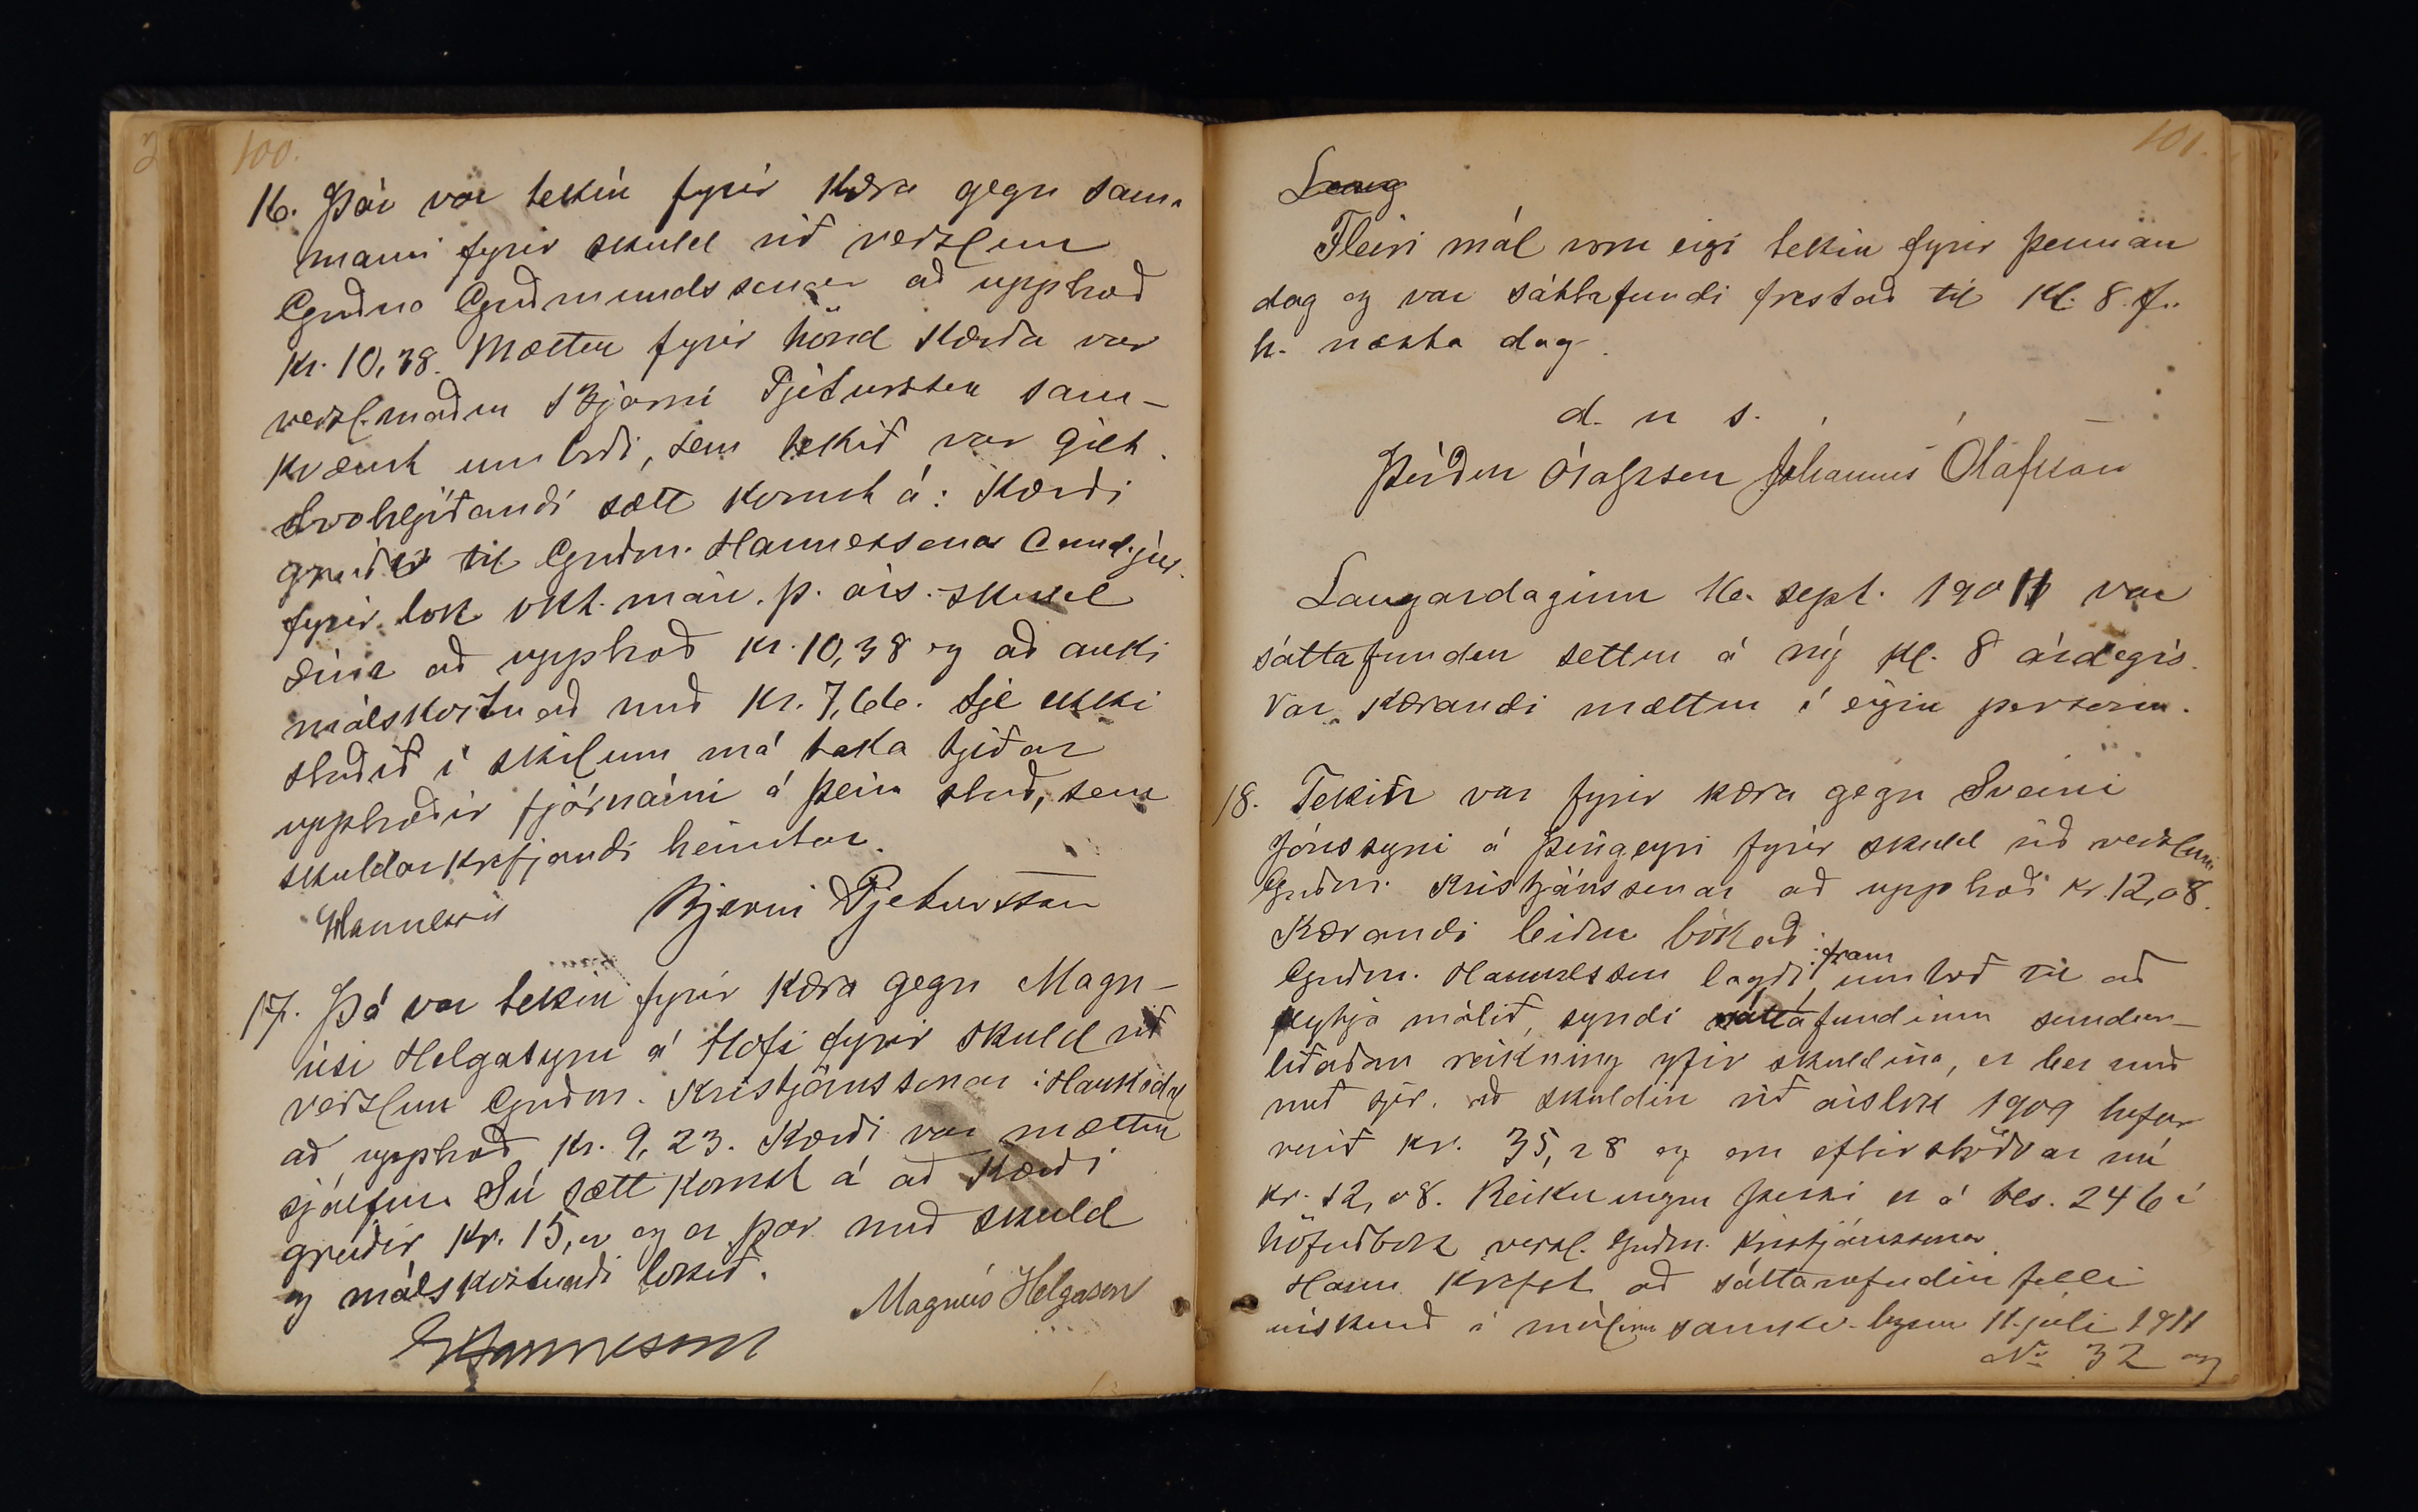 100.
16. Þá var tekin fyrir kæra gegn sama
manni fyrir skuld við verzlun
Guðna Guðmundssonar að upphæð
kr. 10,38. Mættur fyrir hönd kærða var
verzl.maður Bjarni Pjetursson sam-
kvæmt umboði, sem tekið var gilt.
Svohljóðandi sætt komst á: Kærði
greiðir til Guðm. Hannessonar Cand. jur.
fyrir lok okt. mán. þ. árs. skuld
sína að upphæð kr. 10,38 og að auki
málskostnað með kr. 7,66. Sje ekki
staðið í skilum má taka tjeðar
upphæðir fjárnámi á þeim stað, sem
skuldarkrefjandi heimtar.
GHannesson Bjarni Pjetursson
17. Þá var tekin fyrir kæra gegn Magn-
úsi Helgasyni á Hofi fyrir skuld við
verzlun Guðm. Kristjánssonar í Haukadal
að upphæð kr. 9,23. Kærði var mættur
sjálfur. Sú sætt komst á að kærði
greiðir kr. 15, og er þar með skuld
og málskostnaði lokið.
Magnús Helgason
GHannesson
101.
Laug
Fleiri mál voru eigi tekin fyrir þennan
dag og var sáttafundi frestað til Kl. 8 f.
h. næsta dag.
d. u s.
Þórður Ólafsson Jóhannes Ólafsson
Laugardaginn 16. sept. 1911 var
sáttafundur settur á ný kl. 8 árdegis.
Var kærandi mættur í eigin persónu.
18. Tekin var fyrir kæra gegn Sveini
Jónssyni á Þingeyri fyrir skuld við verzlun
Guðm. Kristjánssonar að upphæð kr. 12,08.
Kærandi beiðir bókað:
Guðm. Hannesson lagði fram umboð til að
flytja málið, syndi sáttafundinum sundur-
liðaðan reikning yfir skuldina, er ber með
með sjer, að skuldin við árslok 1909 hefur
verið kr. 35,28 og eru eftirstöðvar nú
kr. 12,08. Reikningur þessi er á bls. 246 í
höfuðbók verzl. Guðm. Kristjánssonar
Hann krefst að sáttanefndin felli
úrskurð í málinu samkv. lögum 11. júlí 1911
No 32 og